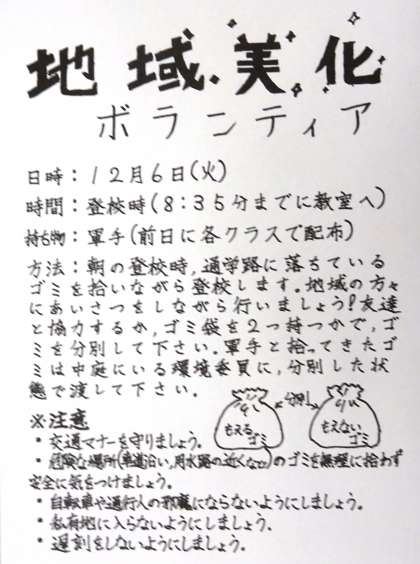 地域美化
ボランティア
日時：12月6日(火)
時間：登校時(8：35分までに教室へ)
持ち物：軍手(前日に各クラスで配布)
方法：朝の登校時，通学路に落ちている
ゴミを拾いながら登校します。地域の方々
にあいさつをしながら行いましょう！友達
と協力するか，ゴミ袋を2つ持つかで，ゴ
ミを分別して下さい。軍手と拾ってきたゴ
ミは中庭にいる環境委員に，分別した状
態で渡して下さい。
分別
もえる
ゴミ
もえない
ゴミ
※注意
・交通マナーを守りましょう。
・危険な場所(車道沿い，用水路の近くなど)のゴミを無理に拾わず
安全に気をつけましょう。
・自転車や通行人の邪魔にならないようにしましょう。
・私有地に入らないようにしましょう。
・遅刻をしないようにしましょう。